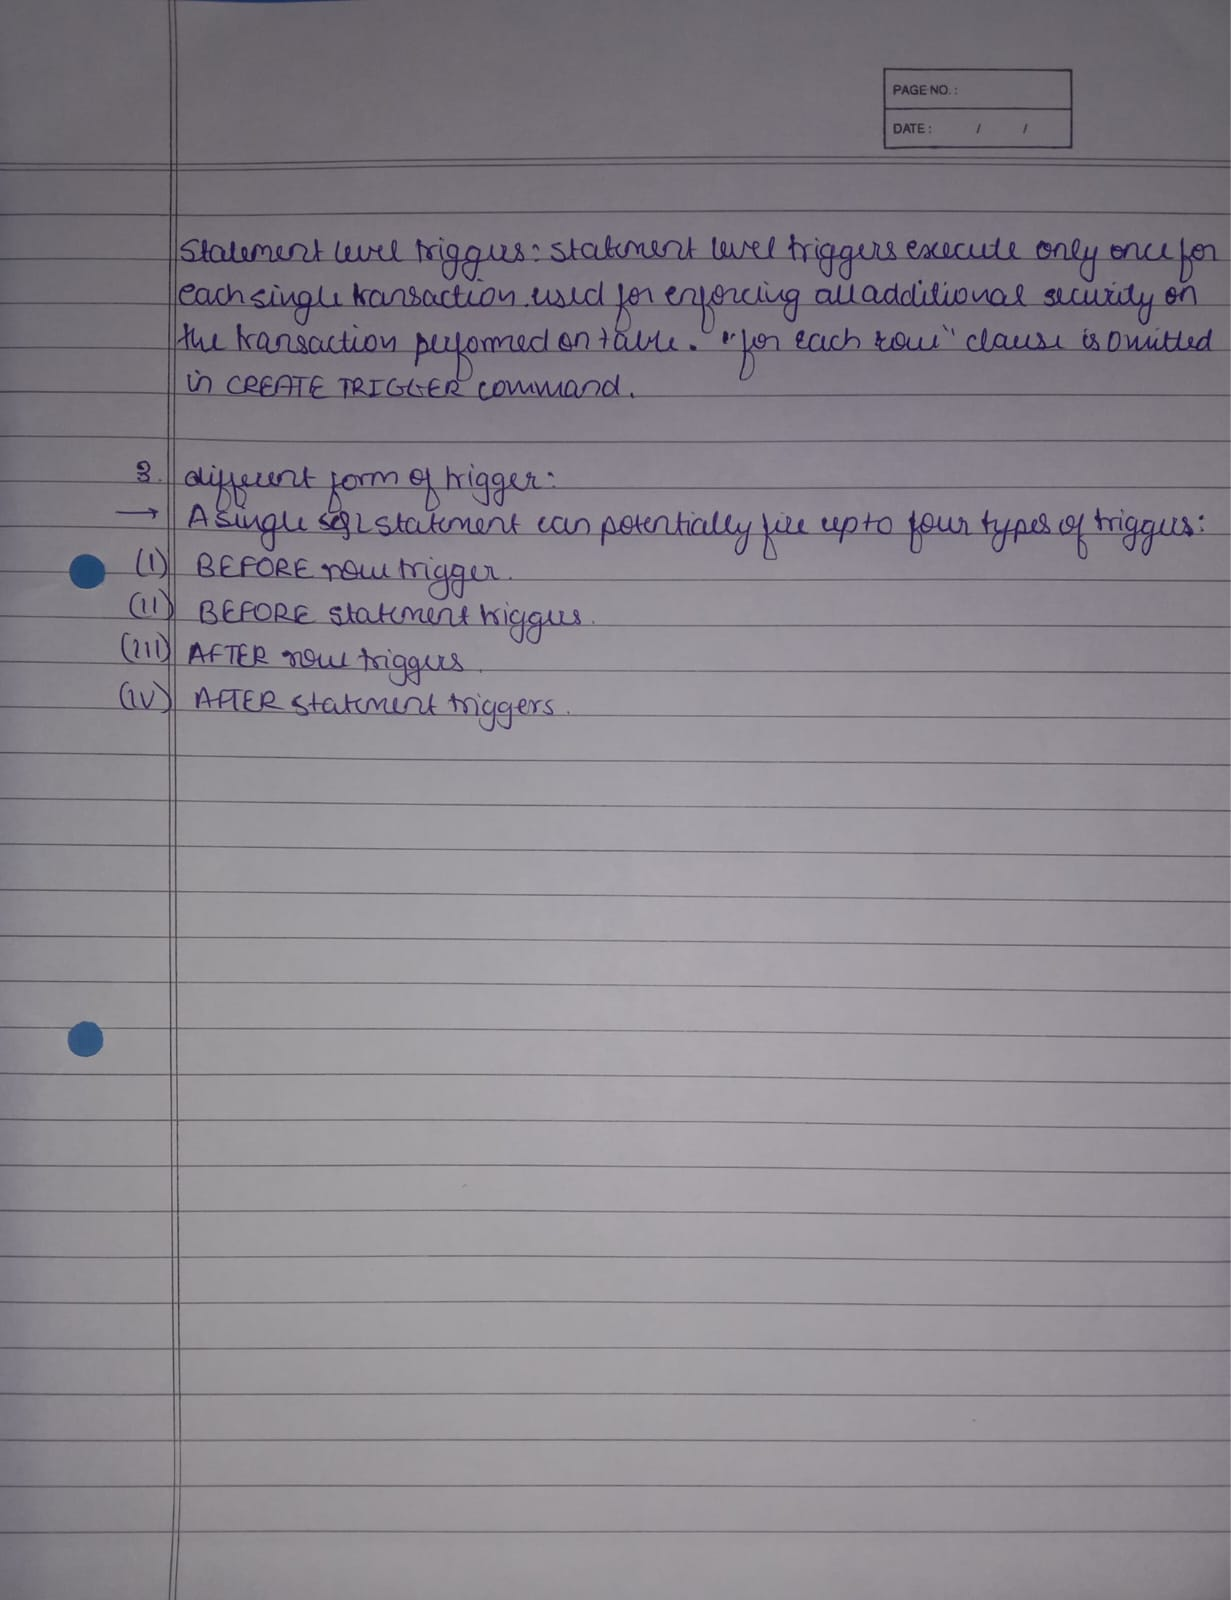 PAGE NO. :
DATE : / /
Statement level triggers: Statement level triggers execute only once for
each single transaction. used for enforcing all additional security on
the transaction performed on table. "for each row" clause is omitted
in CREATE TRIGGER command.
3. different form of trigger:
→ A single SQL statement can potentially fire up to four types of triggers:
(I) BEFORE row trigger.
(II) BEFORE statement triggers.
(III) AFTER row triggers.
(IV) AFTER statement triggers.